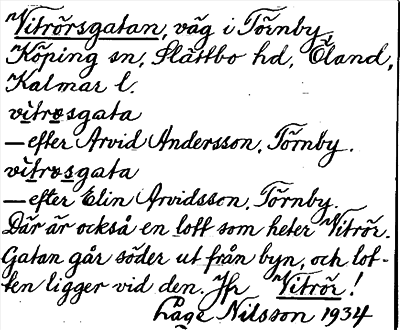 Vitrörsgatan, väg i Törnby,
Köping sn, Slättbo hd, Öland,
Kalmar l.
vìtrøsgata
—efter Arvid Andersson, Törnby.
vìtrøsgata
—efter Elin Arvidsson, Törnby.
Där är också en lott som heter Vitrör.
Gatan går söder ut från byn, och lot-
ten ligger vid den. Jfr Vitrör!
Låge Nilsson 1934